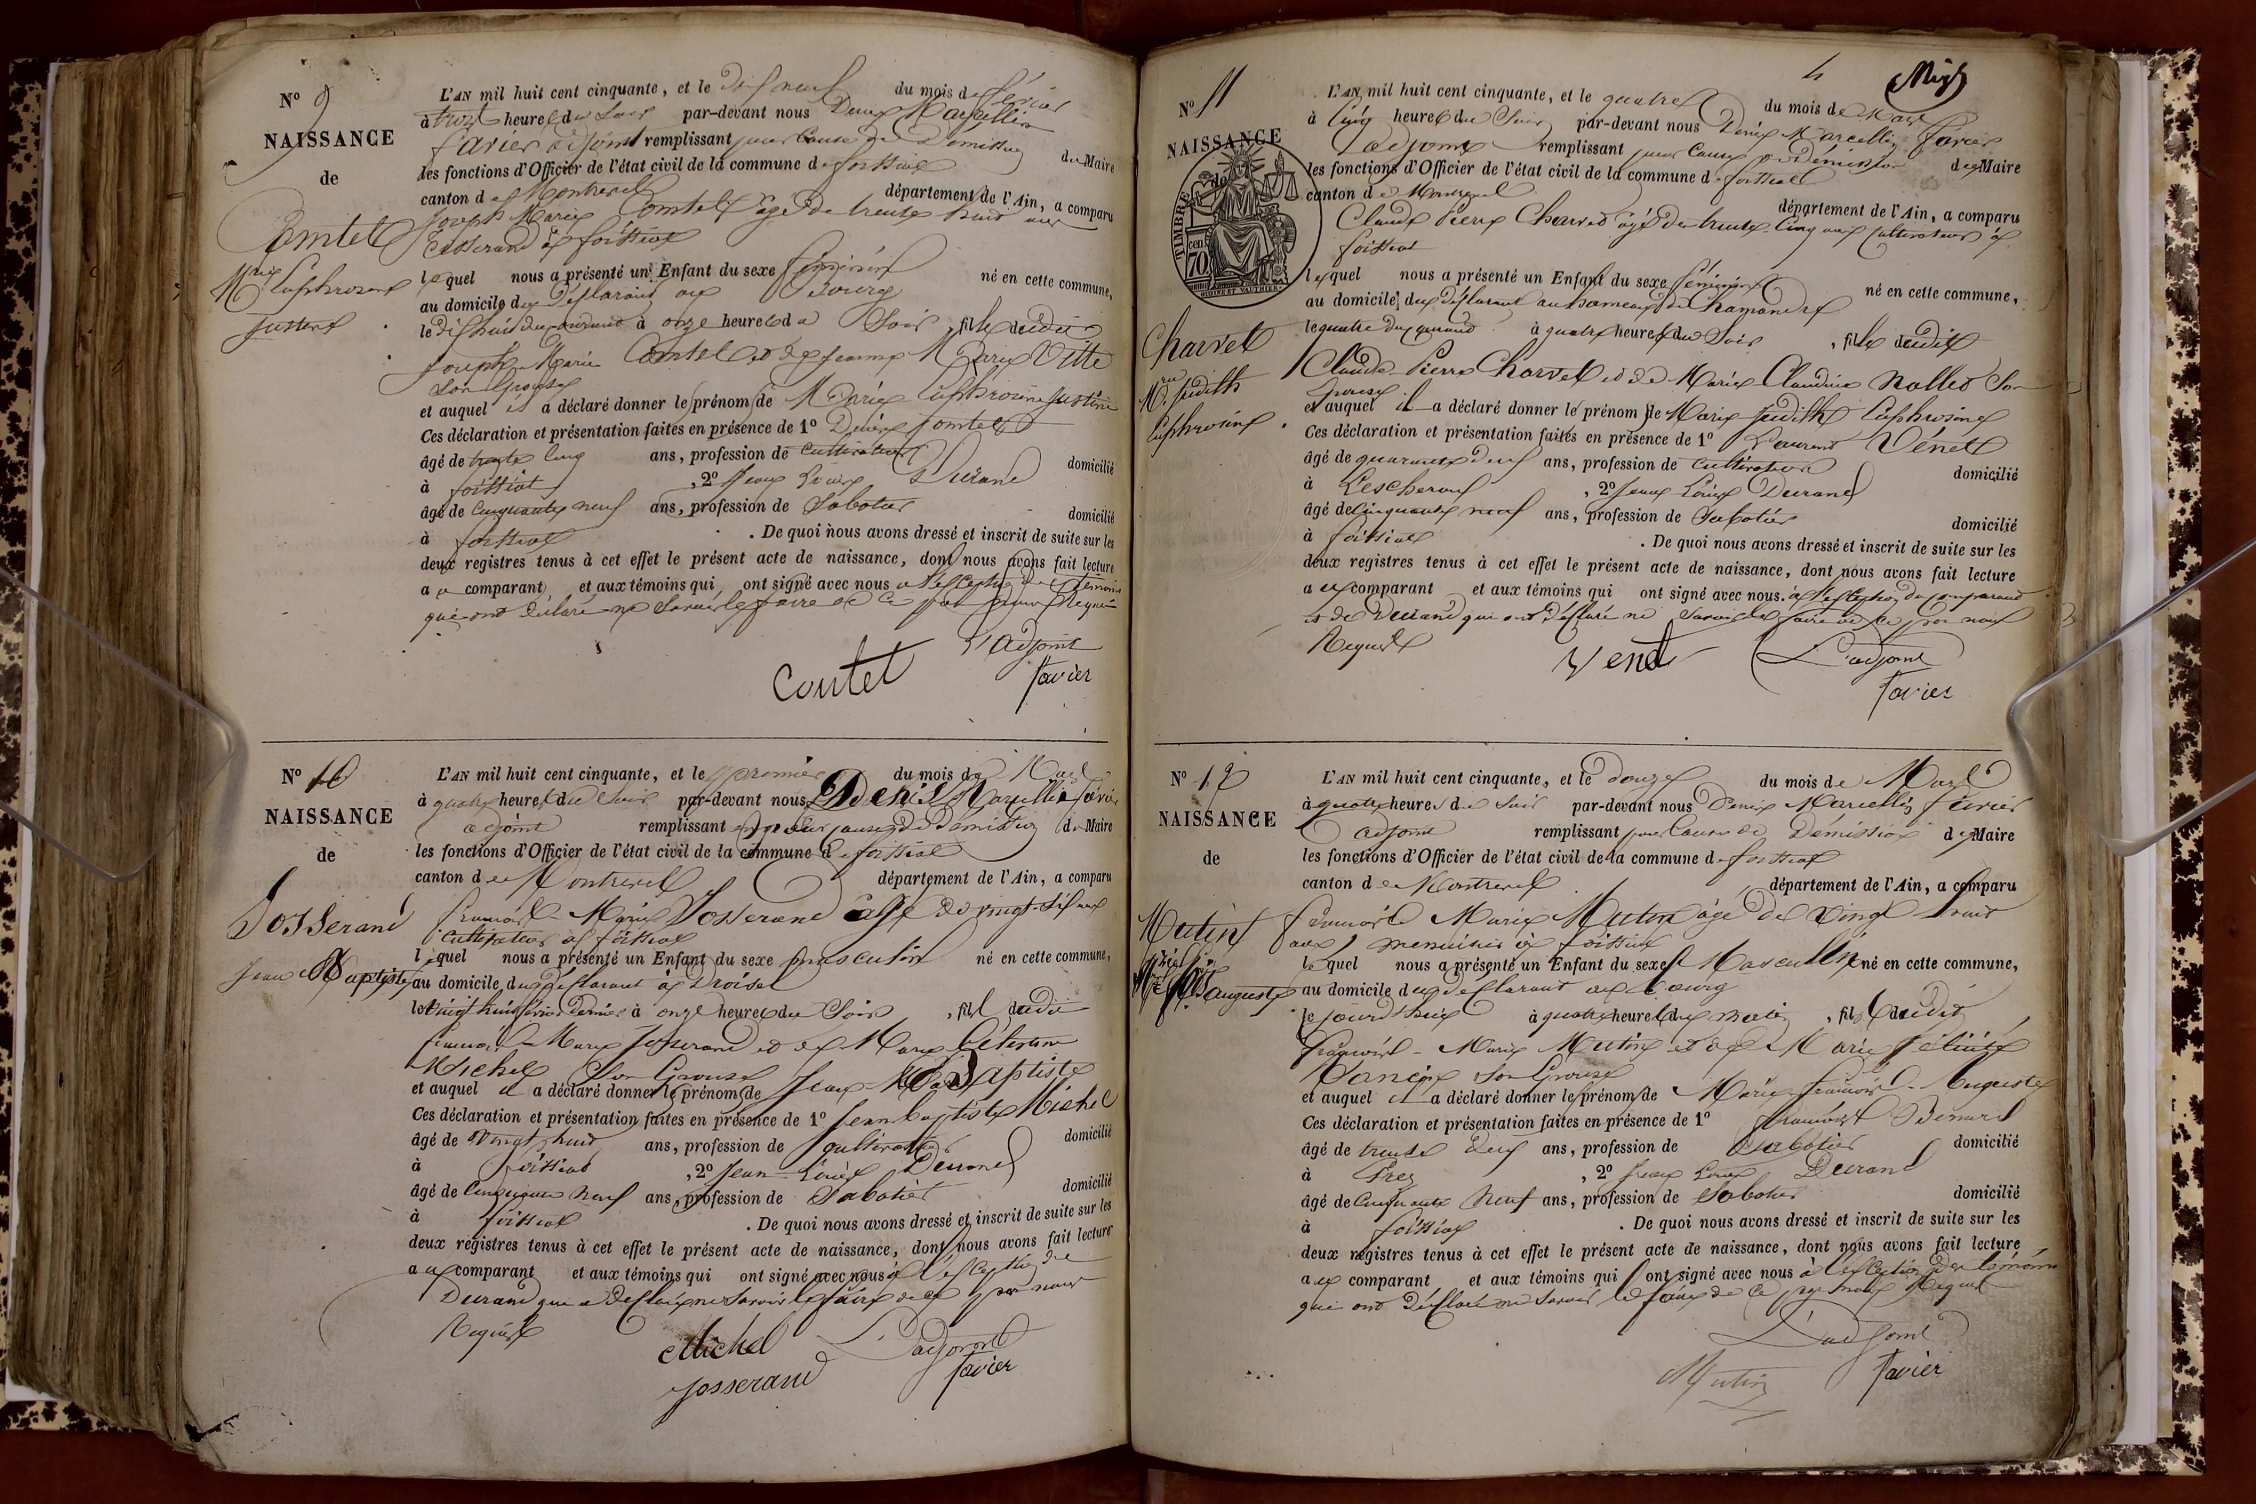 N° 9
NAISSANCE
de
Comtet
Mrie Euphrosine
Justine
L'AN mil huit cent cinquante, et le dix neuf du mois de février
à trois heures du Soir par-devant nous Denis Marcellin
favier adjoint remplissant pour cause de Démission du Maire
les fonctions d'Officier de l'état civil de la commune de foissiat
canton de Montrevel département de l'Ain, a comparu
Joseph Marie Comtet âgé de trente huit ans
tisserand à foissiat
lequel nous a présenté un Enfant du sexe féminin né en cette commune,
au domicile du Déclarant au Bourg
le dix huit du courant à onze heures du Soir, fille dudit
Joseph Marie Comtet et de femme Marie Vitte
Son Epouse
et auquel il a déclaré donner les prénoms de Marie Euphrosine Justine
Ces déclaration et présentation faites en présence de 1° Denis Comtet
âgé de trente cinq ans, profession de Cultivateur domicilié
à foissiat, 2° Jean Louis Durand
âgé de Cinquante neuf ans, profession de Sabotier domicilié
à foissiat. De quoi nous avons dressé et inscrit de suite sur les
deux registres tenus à cet effet le présent acte de naissance, dont nous avons fait lecture
au comparant, et aux témoins qui ont signé avec nous à l'exception des témoins
qui ont déclaré ne Savoir le faire de ce par nous Requis
L'adjoint
Comtet favier
N° 10
NAISSANCE
de
Josserand
Jean Baptiste
L'AN mil huit cent cinquante, et le premier du mois de Mars
à quatre heures du Soir par-devant nous Denis Marcellin favier
adjoint remplissant pour cause de Démission du Maire
les fonctions d'Officier de l'état civil de la commune de foissiat
canton de Montrevel département de l'Ain, a comparu
françois Marie Josserand âgé de vingt-six ans
Cultivateur à foissiat
lequel nous a présenté un Enfant du sexe masculin né en cette commune,
au domicile du Déclarant à
le vingt huit février dernier à onze heures du Soir, fils dudit
françois Marie Josserand et de Marie
Michel Son Epouse
et auquel il a déclaré donner les prénoms de Jean Baptiste
Ces déclaration et présentation faites en présence de 1° Jean Baptiste Michel
âgé de vingt huit ans, profession de cultivateur domicilié
à foissiat, 2° Jean Louis Durand
âgé de Cinquante neuf ans, profession de Sabotier domicilié
à foissiat. De quoi nous avons dressé et inscrit de suite sur les
deux registres tenus à cet effet le présent acte de naissance, dont nous avons fait lecture
au comparant et aux témoins qui ont signé avec nous à l'exception de
Durand qui a déclaré ne Savoir le faire de ce par nous
Requis
Michel L'adjoint
Josserand favier
4
N° 11
NAISSANCE
de
TIMBRE
70 cen
Charvet
Mrie Judith
Euphrosine
L'AN mil huit cent cinquante, et le quatre du mois de Mars
à Cinq heures du Soir par-devant nous Denis Marcellin favier
adjoint remplissant pour cause de Démission du Maire
les fonctions d'Officier de l'état civil de la commune de foissiat
canton de Montrevel département de l'Ain, a comparu
Claude Pierre Charvet âgé de trente-Cinq ans cultivateur à
foissiat
lequel nous a présenté un Enfant du sexe féminin né en cette commune,
au domicile du déclarant au hameau de
le quatre du courant à quatre heures du Soir, fille dudit
Claude-Pierre Charvet et de Marie Claudine Nallet Son
Epouse
et auquel il a déclaré donner les prénoms de Marie Judith Euphrosine
Ces déclaration et présentation faites en présence de 1° Laurent Vénet
âgé de quarante deux ans, profession de Cultivateur domicilié
à Lescheroux, 2° Jean Louis Durand
âgé de Cinquante neuf ans, profession de Sabotier domicilié
à foissiat. De quoi nous avons dressé et inscrit de suite sur les
deux registres tenus à cet effet le présent acte de naissance, dont nous avons fait lecture
au comparant et aux témoins qui ont signé avec nous. à l'exception du comparant
et de Durand qui ont déclaré ne Savoir le faire de ce par nous
Requis
Venet L'adjoint
favier
N° 12
NAISSANCE
de
Mutin
Auguste
L'AN mil huit cent cinquante, et le douze du mois de Mars
à quatre heures du Soir par-devant nous Denis Marcellin favier
adjoint remplissant pour cause de Démission du Maire
les fonctions d'Officier de l'état civil de la commune de foissiat
canton de Montrevel département de l'Ain, a comparu
françois Marie Mutin âgé de vingt huit
ans menuisier à foissiat
lequel nous a présenté un Enfant du sexe Masculin né en cette commune,
au domicile du déclarant au Bourg
le jourd'hui à quatre heures du matin, fils dudit
françois-Marie Mutin et de Marie
Son Epouse
et auquel il a déclaré donner les prénoms de Marie françois-Auguste
Ces déclaration et présentation faites en présence de 1° françois
âgé de trente deux ans, profession de Sabotier domicilié
à, 2° Jean Louis Durand
âgé de Cinquante Neuf ans, profession de Sabotier domicilié
à foissiat. De quoi nous avons dressé et inscrit de suite sur les
deux registres tenus à cet effet le présent acte de naissance, dont nous avons fait lecture
au comparant et aux témoins qui ont signé avec nous à l'exception des témoins
qui ont déclaré ne Savoir le faire de ce par nous Requis
L'adjoint
Mutin favier